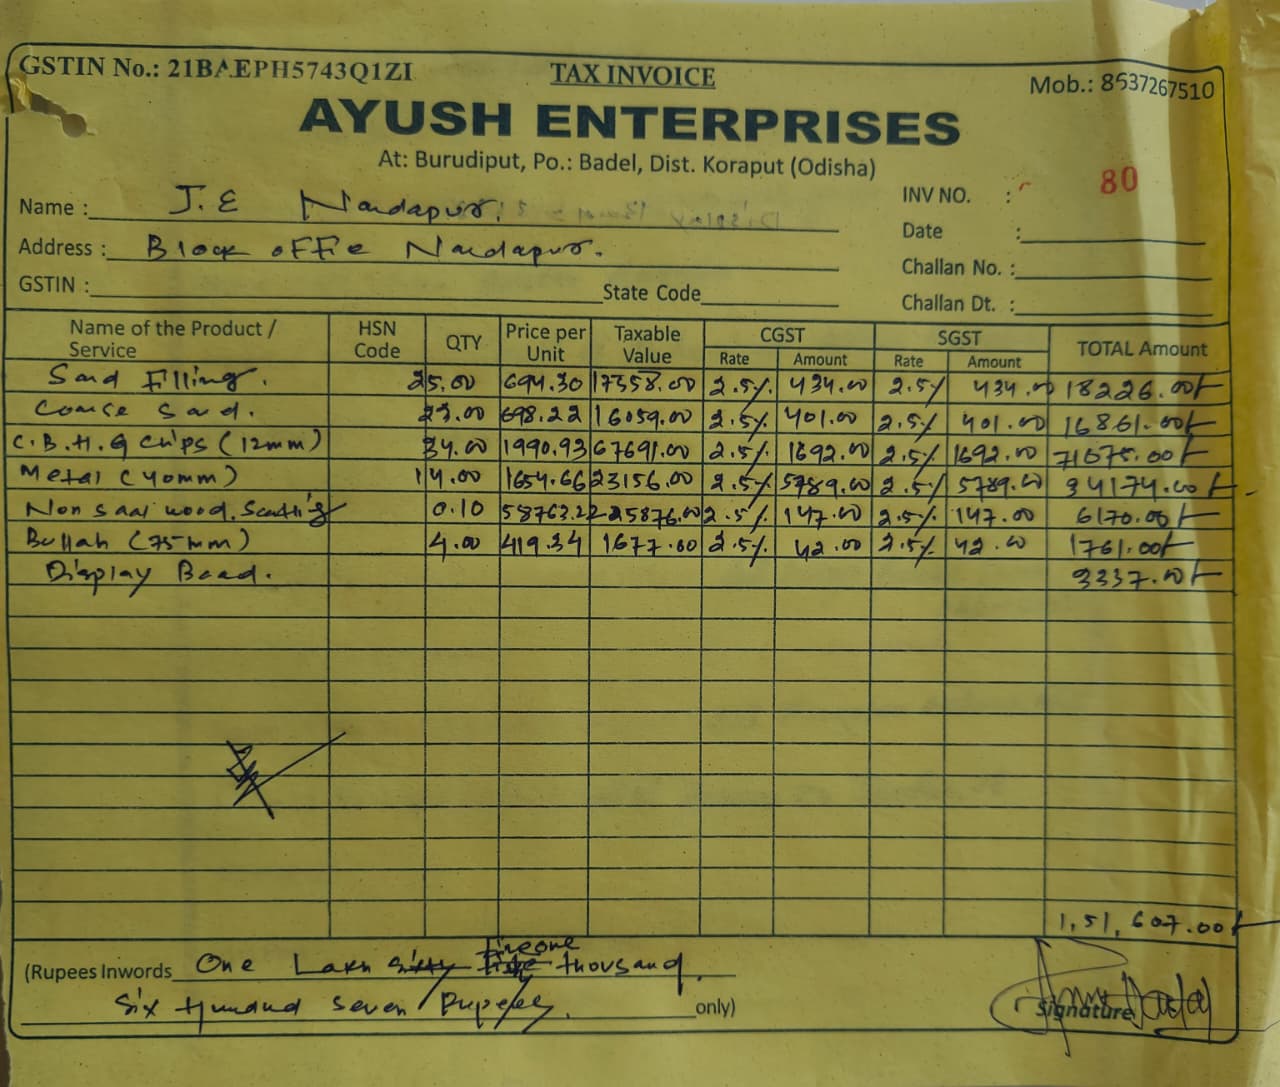 GSTIN No.: 21BAEPH5743Q1ZI TAX INVOICE Mob.: 8637267510
AYUSH ENTERPRISES
At: Burudiput, Po.: Badel, Dist. Koraput (Odisha)
INV NO. : 80
Name : J.E Nandapur.
Date :
Address : Block offie Nandapur.
Challan No. :
GSTIN : State Code
Challan Dt. :
Name of the Product / Service HSN Code QTY Price per Unit Taxable Value CGST Rate Amount SGST Rate Amount TOTAL Amount
Sand Filling. 25.00 694.30 17358.00 2.5% 434.00 2.5% 434.00 18226.00
Coarse Sand. 23.00 698.22 16059.00 2.5% 401.00 2.5% 401.00 16861.00
C.B.H.G Chips (12mm) 34.00 1990.93 67691.00 2.5% 1692.00 2.5% 1692.00 71075.00
Metal (40mm) 14.00 1654.66 23156.00 2.5% 5789.00 2.5% 5789.00 34174.00
Non Saal wood. 0.10 58763.22 5876.00 2.5% 147.00 2.5% 147.00 6170.00
Bullah (75mm) 4.00 419.34 1677.00 2.5% 42.00 2.5% 42.00 1761.00
Display Board. 3337.00
1,51,607.00
(Rupees Inwords One Lakh thousand.
Six Hundred Seven Rupees. only)
Signature